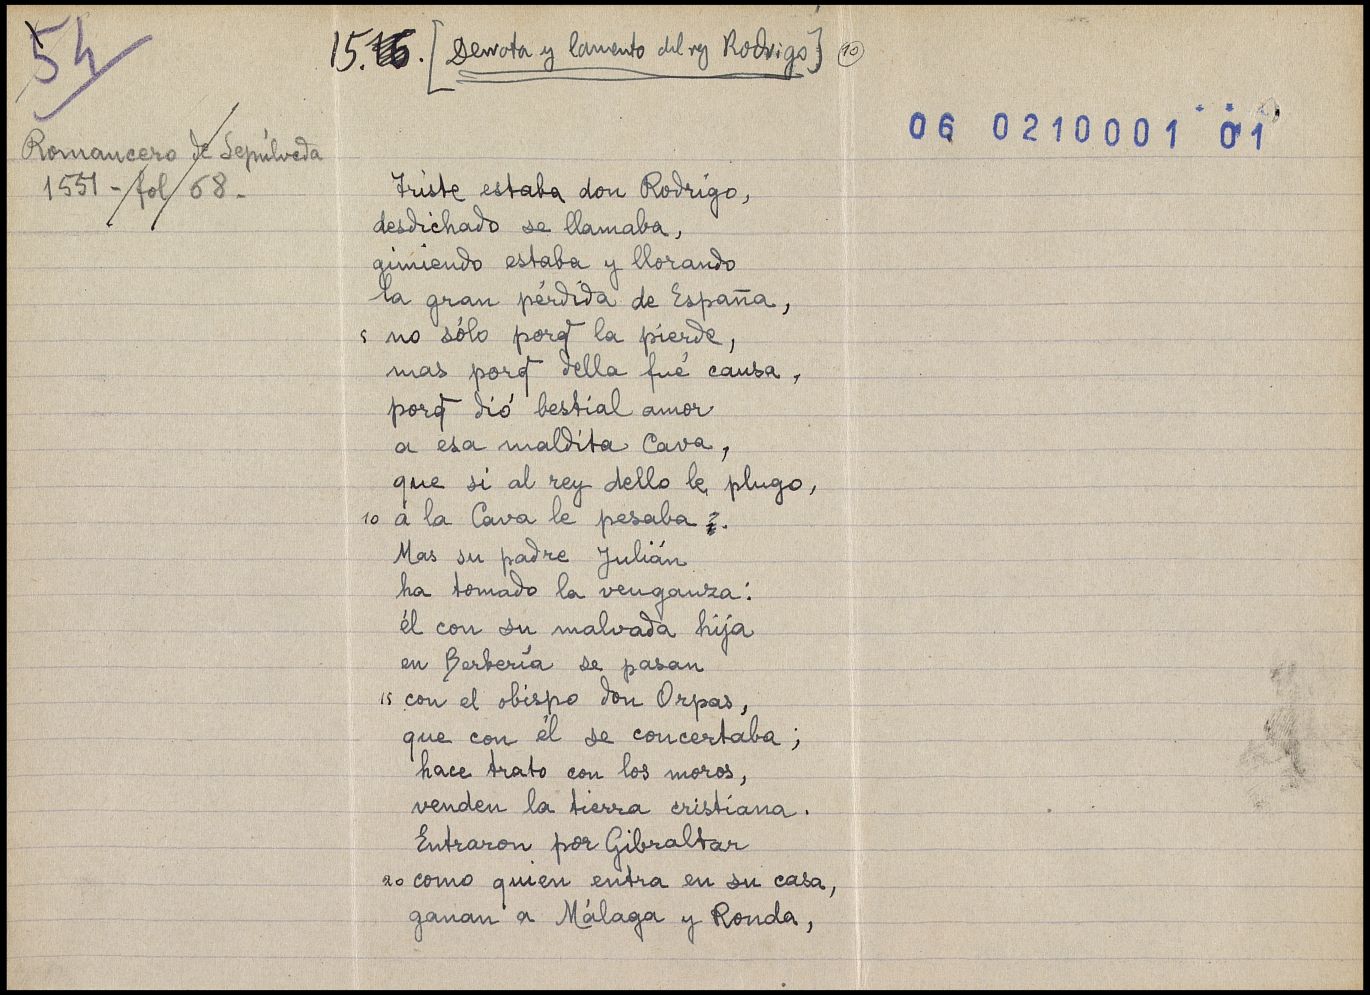 54
15. [Derrota y lamento del rey Rodrigo] 10
06 0210001 01
Romancero de Sepúlveda
1551 - fol 68 -
Triste estaba don Rodrigo,
desdichado se llamaba,
gimiendo estaba y llorando
la gran pérdida de España,
5 no sólo porq̄ la pierde,
mas porq̄ della fué causa,
porq̄ dió bestial amor
a esa maldita Cava,
que si al rey dello le plugo,
10 á la Cava le pesaba.
Mas su padre Julián
ha tomado la venganza:
él con su malvada hija
en Berbería se pasan
15 con el obispo don Orpas,
que con él se concertaba;
hace trato con los moros,
venden la tierra cristiana.
Entraron por Gibraltar
20 como quien entra en su casa,
ganan a Málaga y Ronda,